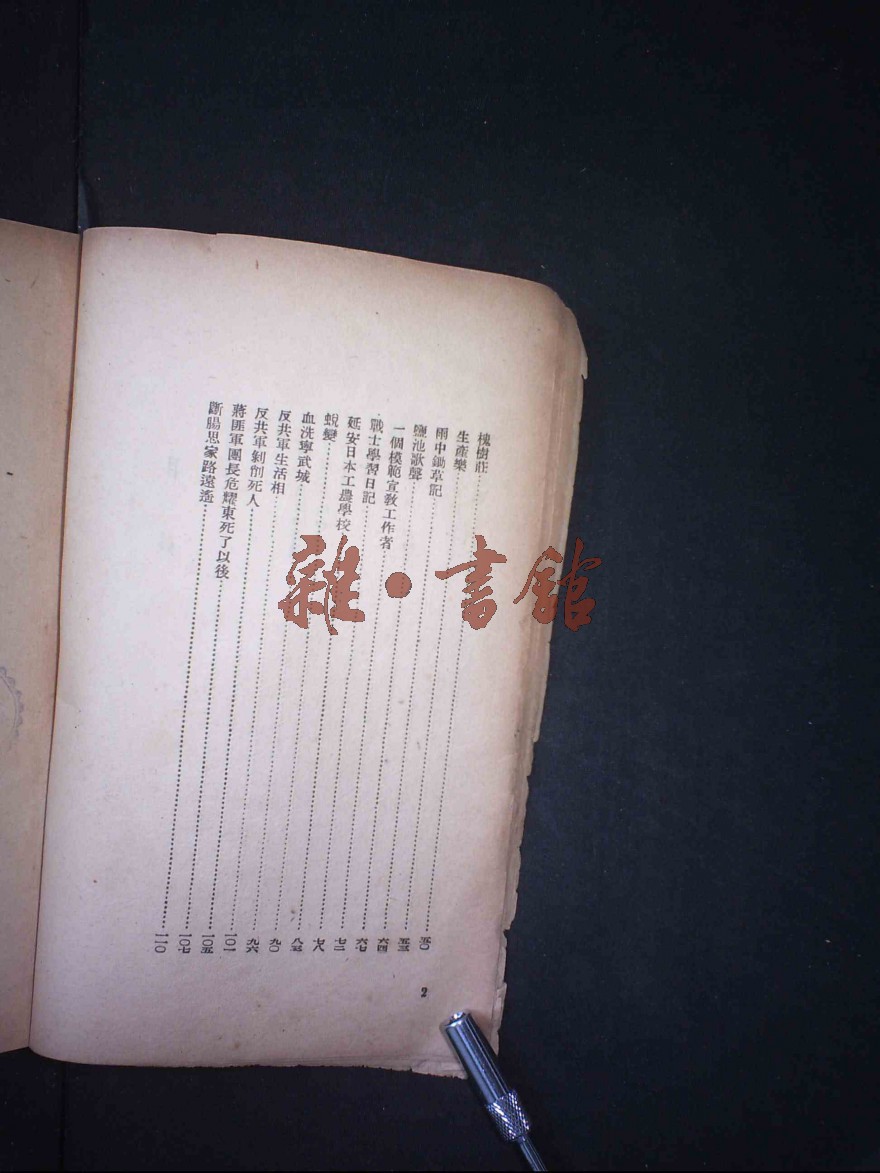 槐樹莊……五〇
生產樂……五三
雨中鋤草記……六四
鹽池歌聲……六七
一個模範宣教工作者……七二
戰士學習日記……七八
延安日本工農學校……八三
蛻變……九〇
血洗寧武城……九六
反共軍生活相……一〇一
反共軍剝削死人……一〇五
蔣匪軍團長危耀東死了以後……一〇七
斷腸思家路遠遙……一一〇
2
雜·書館